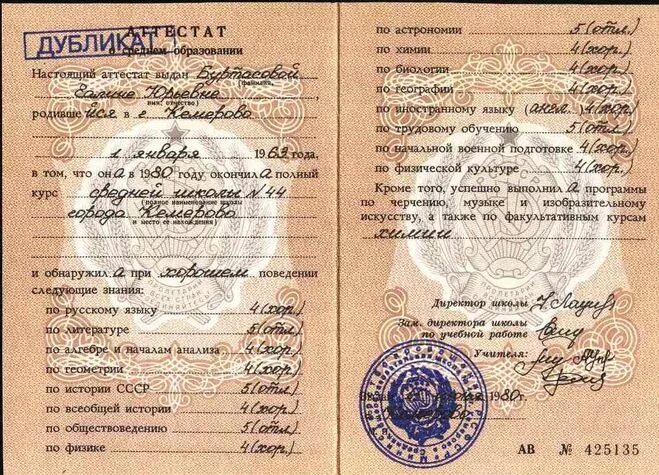 АТТЕСТАТ
ДУБЛИКАТ
о среднем образовании
Настоящий аттестат выдан Буртасовой
(фамилия,
Галине Юрьевне
имя, отчество)
родившейся в г. Кемерово
1 января 1963 года,
в том, что она в 1980 году окончила полный
курс средней школы № 44
(полное наименование школы
города Кемерово
и место ее нахождения)
и обнаружила при хорошем поведении
следующие знания:
по русскому языку 4 (хор.)
по литературе 5 (отл.)
по алгебре и началам анализа 4 (хор.)
по геометрии 4 (хор.)
по истории СССР 5 (отл.)
по всеобщей истории 4 (хор.)
по обществоведению 5 (отл.)
по физике 4 (хор.)
по астрономии 5 (отл.)
по химии 4 (хор.)
по биологии 4 (хор.)
по географии 4 (хор.)
по иностранному языку (англ.) 4 (хор.)
по трудовому обучению 5 (отл.)
по начальной военной подготовке 4 (хор.)
по физической культуре 4 (хор.)
Кроме того, успешно выполнила программы
по черчению, музыке и изобразительному
искусству, а также по факультативным курсам
химии
Директор школы
Зам. директора школы
по учебной работе
Учителя:
1980 г.
АВ № 425135